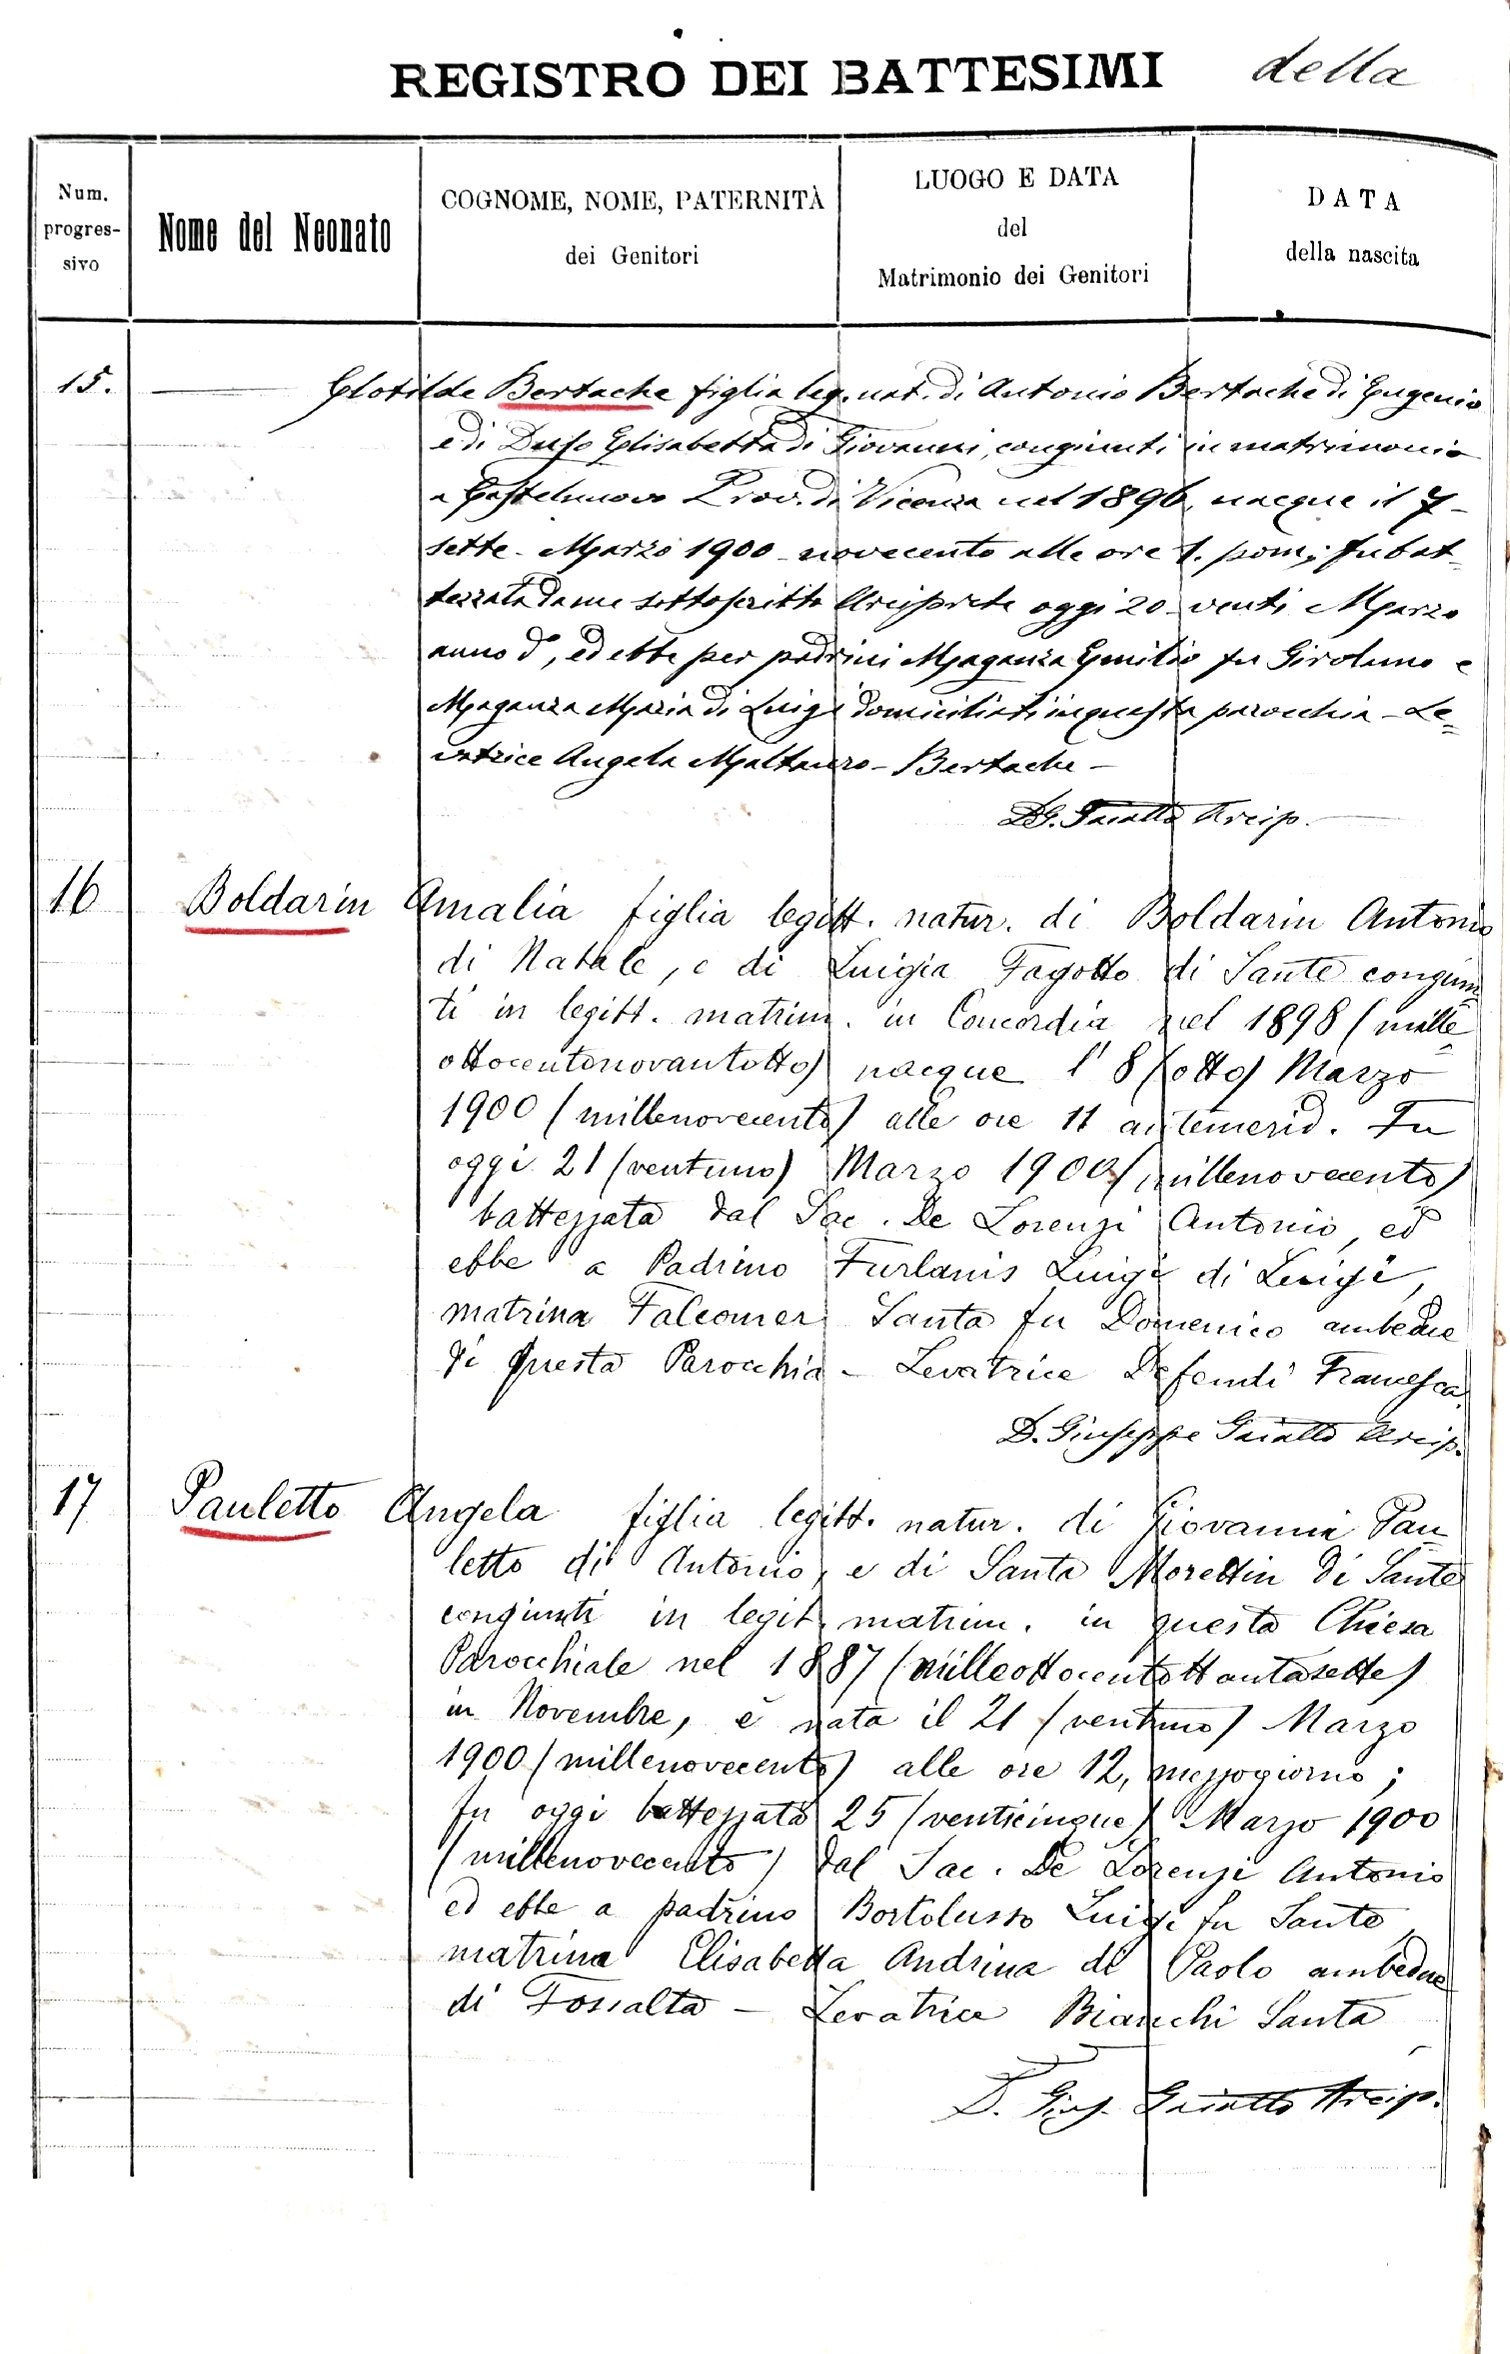 REGISTRO DEI BATTESIMI della
Num. progres- sivo
Nome del Neonato
COGNOME, NOME, PATERNITÀ
dei Genitori
LUOGO E DATA
del
Matrimonio dei Genitori
DATA
della nascita
15. Clotilde Bertache figlia leg. nat. di Antonio Bertache di Eugenio
e di Elisabetta di Giovanni, congiunti in matrimonio
a Castelnuovo Prov. di Vicenza nel 1896, nacque il 7 -
sette - Marzo 1900 novecento alle ore 1. pom; fu bat-
tezzata da me sottoscritto Arciprete oggi 20 - venti Marzo
anno do, ed ebbe per padrini Maganza Emilio fu Girolamo e
Maganza Maria di Luigi domiciliati in questa parocchia - Le=
vatrice Angela Maltauro - Bertache -
D G. Arcip.
16 Boldarin Amalia figlia legitt. natur. di Boldarin Antonio
di Natale, e di Luigia Fagotto di Sante congiun=
ti in legitt. matrim. in Concordia nel 1898 (mille=
ottocentonovantotto) nacque l'8 (otto) Marzo
1900 (millenovecento) alle ore 11 antemerid. Fu
oggi 21 (ventuno) Marzo 1900 (millenovecento)
battezzata dal Sac. De Lorenzi Antonio, ed
ebbe a Padrino Furlanis Luigi di Luigi,
matrina Falcomer Santa fu Domenico ambedue
di questa Parocchia - Levatrice Defendi Francesca.
D. Giuseppe Arcip.
17 Pauletto Angela figlia legitt. natur. di Giovanni Pau
letto di Antonio, e di Santa Morettin di Sante
congiunti in legit. matrim. in questa Chiesa
Parocchiale nel 1887 (milleottocentottantasette)
in Novembre, è nata il 21 (ventuno) Marzo
1900 (millenovecento) alle ore 12, mezzogiorno;
fu oggi battezzata 25 (venticinque) Marzo 1900
(millenovecento) dal Sac. De Lorenzi Antonio
ed ebbe a padrino Bortolusso Luigi fu Sante
matrina Elisabetta Andrina di Paolo ambedue
di Fossalta - Levatrice Bianchi Santa
D. Arcip.